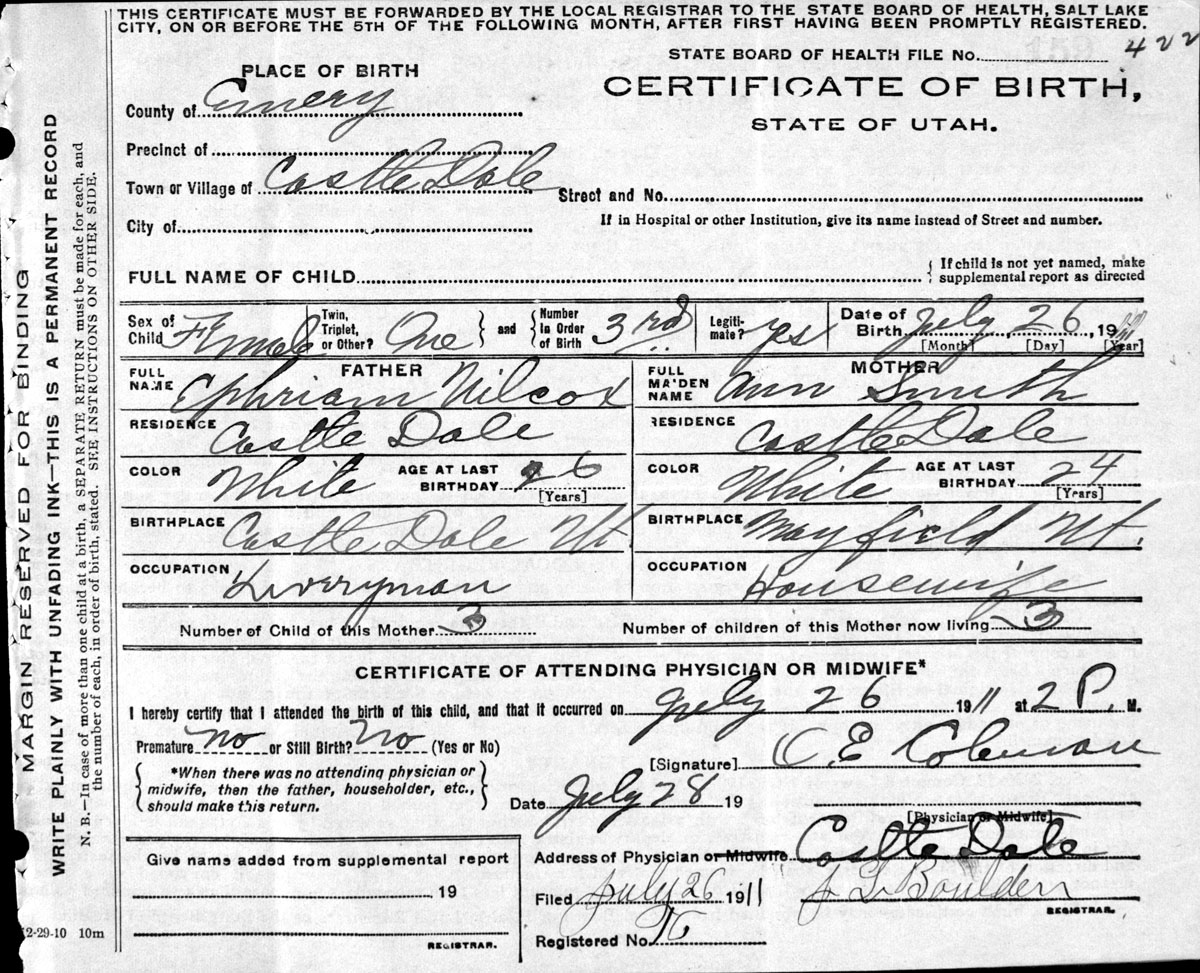 THIS CERTIFICATE MUST BE FORWARDED BY THE LOCAL REGISTRAR TO THE STATE BOARD OF HEALTH, SALT LAKE
CITY, ON OR BEFORE THE 5TH OF THE FOLLOWING MONTH, AFTER FIRST HAVING BEEN PROMPTLY REGISTERED.
STATE BOARD OF HEALTH FILE No. 422
PLACE OF BIRTH
CERTIFICATE OF BIRTH,
STATE OF UTAH.
County of Emery
Precinct of
Town or Village of Castle Dale Street and No.
City of If in Hospital or other Institution, give its name instead of Street and number.
FULL NAME OF CHILD { If child is not yet named, make
supplemental report as directed
Sex of Child Female Twin, Triplet, or Other? One } and { Number In Order of Birth 3rd Legiti-mate? yes Date of Birth July 26 19
[Month] [Day] [Year]
FATHER MOTHER
FULL NAME Ephriam Wilcox FULL MAIDEN NAME Ann Smith
RESIDENCE Castle Dale RESIDENCE Castle Dale
COLOR White AGE AT LAST BIRTHDAY 26 [Years] COLOR White AGE AT LAST BIRTHDAY 24 [Years]
BIRTHPLACE Castle Dale Ut. BIRTHPLACE Mayfield Ut.
OCCUPATION Liverryman OCCUPATION Housewife
Number of Child of this Mother 3 Number of children of this Mother now living 3
CERTIFICATE OF ATTENDING PHYSICIAN OR MIDWIFE*
I hereby certify that I attended the birth of this child, and that it occurred on July 26 1911 at 2 P. M.
Premature No or Still Birth? No (Yes or No)
[Signature] O. E. Coleman
{ *When there was no attending physician or
midwife, then the father, householder, etc.,
should make this return. }
Date July 28 19
[Physician or Midwife]
Give name added from supplemental report
19
REGISTRAR.
Address of Physician or Midwife Castle Dale
Filed July 26 1911 REGISTRAR.
Registered No.
12-29-10 10m
MARGIN RESERVED FOR BINDING
WRITE PLAINLY WITH UNFADING INK—THIS IS A PERMANENT RECORD
N. B.—In case of more than one child at a birth, a SEPARATE RETURN must be made for each, and
the number of each, in order of birth, stated. SEE INSTRUCTIONS ON OTHER SIDE.